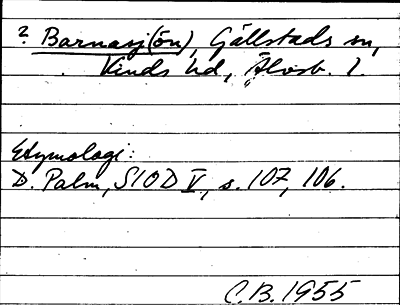 ? Barnasj(ön), Gällstads sn,
Kinds hd, Älvsb. l.
Etymologi:
D. Palm, SIOD V, s. 107, 106.
C.B. 1955